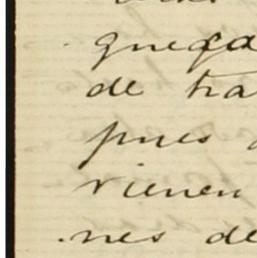 queça
de tra
pues
vienen
nes de